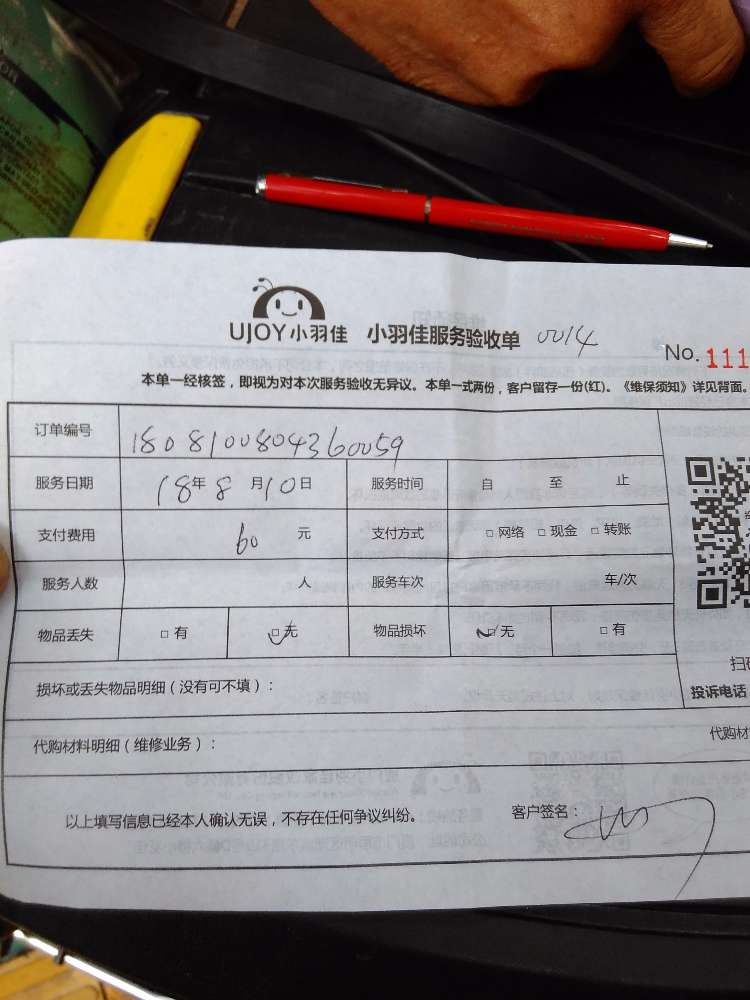 UJOY小羽佳 小羽佳服务验收单 0014
No. 111
本单一经核签，即视为对本次服务验收无异议。本单一式两份，客户留存一份(红)。《维保须知》详见背面。
订单编号 1808100804360059
服务日期 18年 8 月 10日 服务时间 自 至 止
支付费用 60 元 支付方式 □网络 □现金 □转账
服务人数 人 服务车次 车/次
物品丢失 □有 ☑无 物品损坏 ☑无 □有
扫码
损坏或丢失物品明细（没有可不填）： 投诉电话
代购材料明细（维修业务）： 代购材
以上填写信息已经本人确认无误，不存在任何争议纠纷。 客户签名：